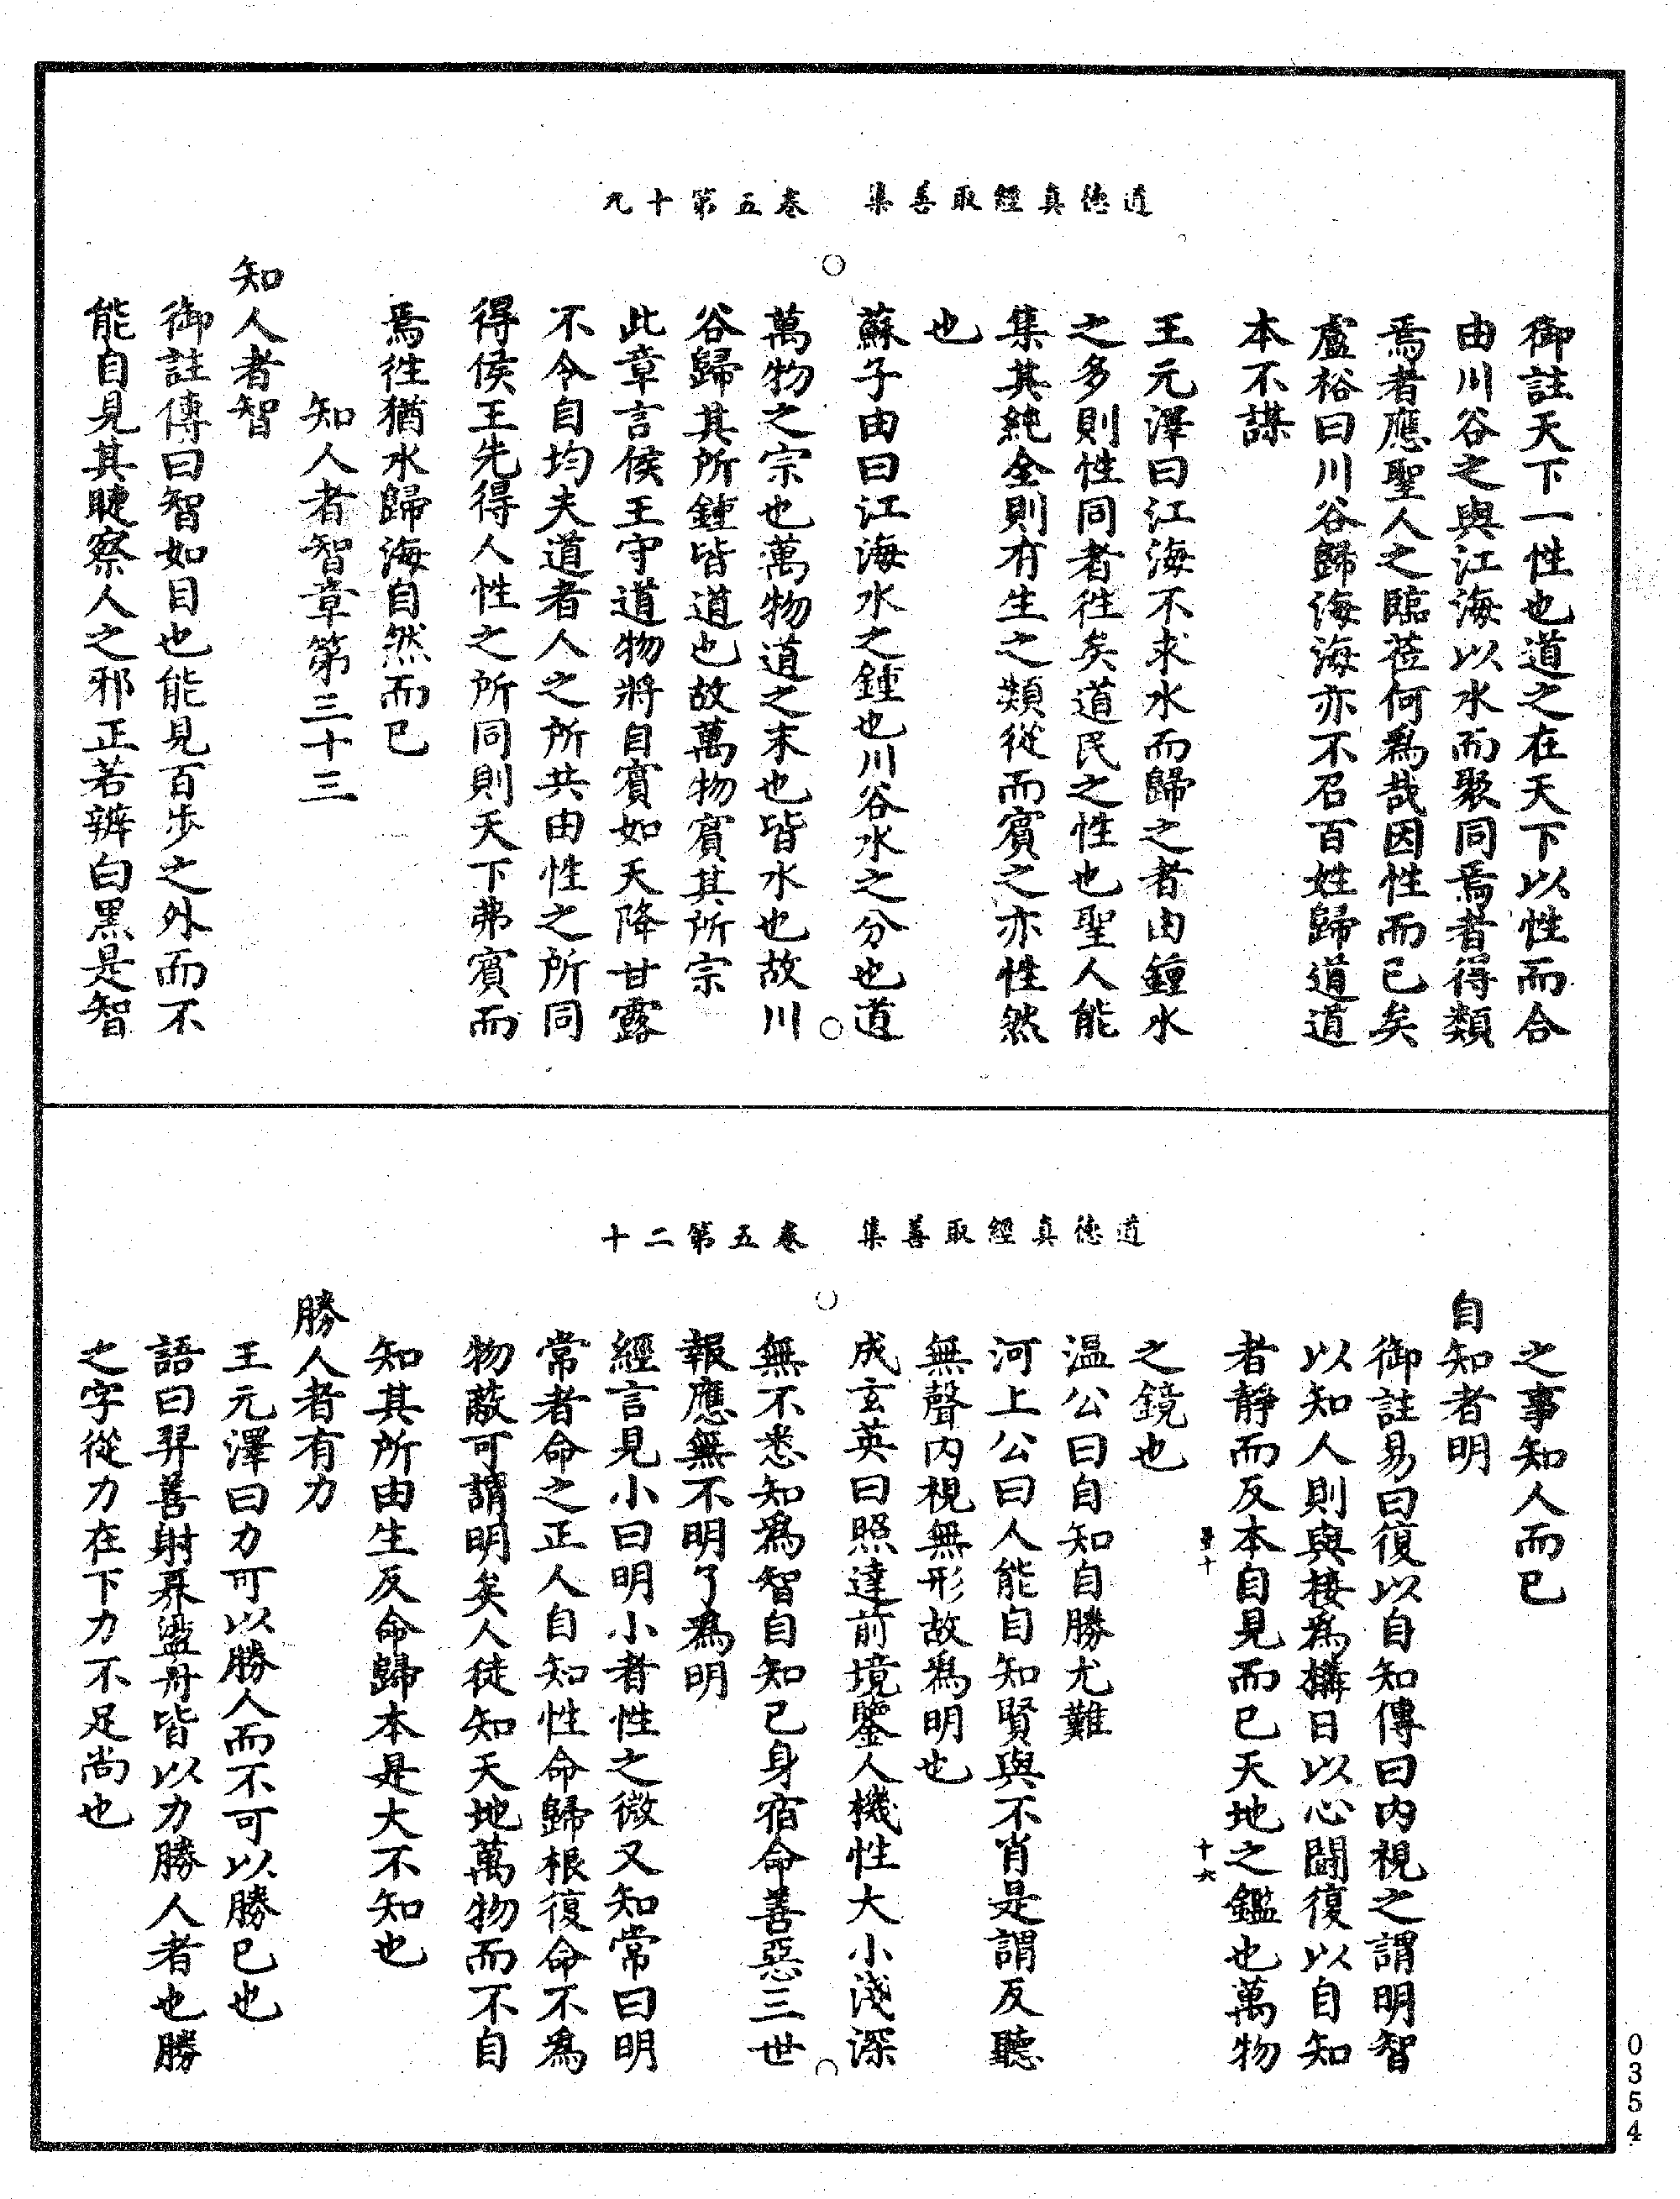 道德真經取善集　卷五第十九
御註天下一性也道之在天下以性而合
由川谷之與江海以水而聚同焉者得類
焉者應聖人之臨莅何爲哉因性而已矣
盧裕曰川谷歸海海亦不召百姓歸道道
本不謀
王元澤曰江海不求水而歸之者由鍾水
之多則性同者徃矣道民之性也聖人能
集其純全則有生之類從而賓之亦性然
也
蘇子由曰江海水之鍾也川谷水之分也道
萬物之宗也萬物道之末也皆水也故川
谷歸其所鍾皆道也故萬物賓其所宗
此章言侯王守道物將自賓如天降甘露
不令自均夫道者人之所共由性之所同
得侯王先得人性之所同則天下弗賓而
焉徃猶水歸海自然而已
知人者智章第三十三
知人者智
御註傳曰智如目也能見百步之外而不
能自見其睫察人之邪正若辨白黑是智
道德真經取善集　卷五第二十
之事知人而已
自知者明
御註易曰復以自知傳曰内視之謂明智
以知人則與接爲構日以心鬪復以自知
者靜而反本自見而已天地之鑑也萬物
十六
之鏡也
温公曰自知自勝尤難
河上公曰人能自知賢與不肖是謂反聽
無聲内視無形故爲明也
成玄英曰照達前境鑒人機性大小淺深
無不悉知爲智自知己身宿命善惡三世
報應無不明了爲明
經言見小曰明小者性之微又知常曰明
常者命之正人自知性命歸根復命不爲
物蔽可謂明矣人徒知天地萬物而不自
知其所由生反命歸本是大不知也
勝人者有力
王元澤曰力可以勝人而不可以勝已也
語曰羿善射奡盪舟皆以力勝人者也勝
之字從力在下力不足尚也
0354